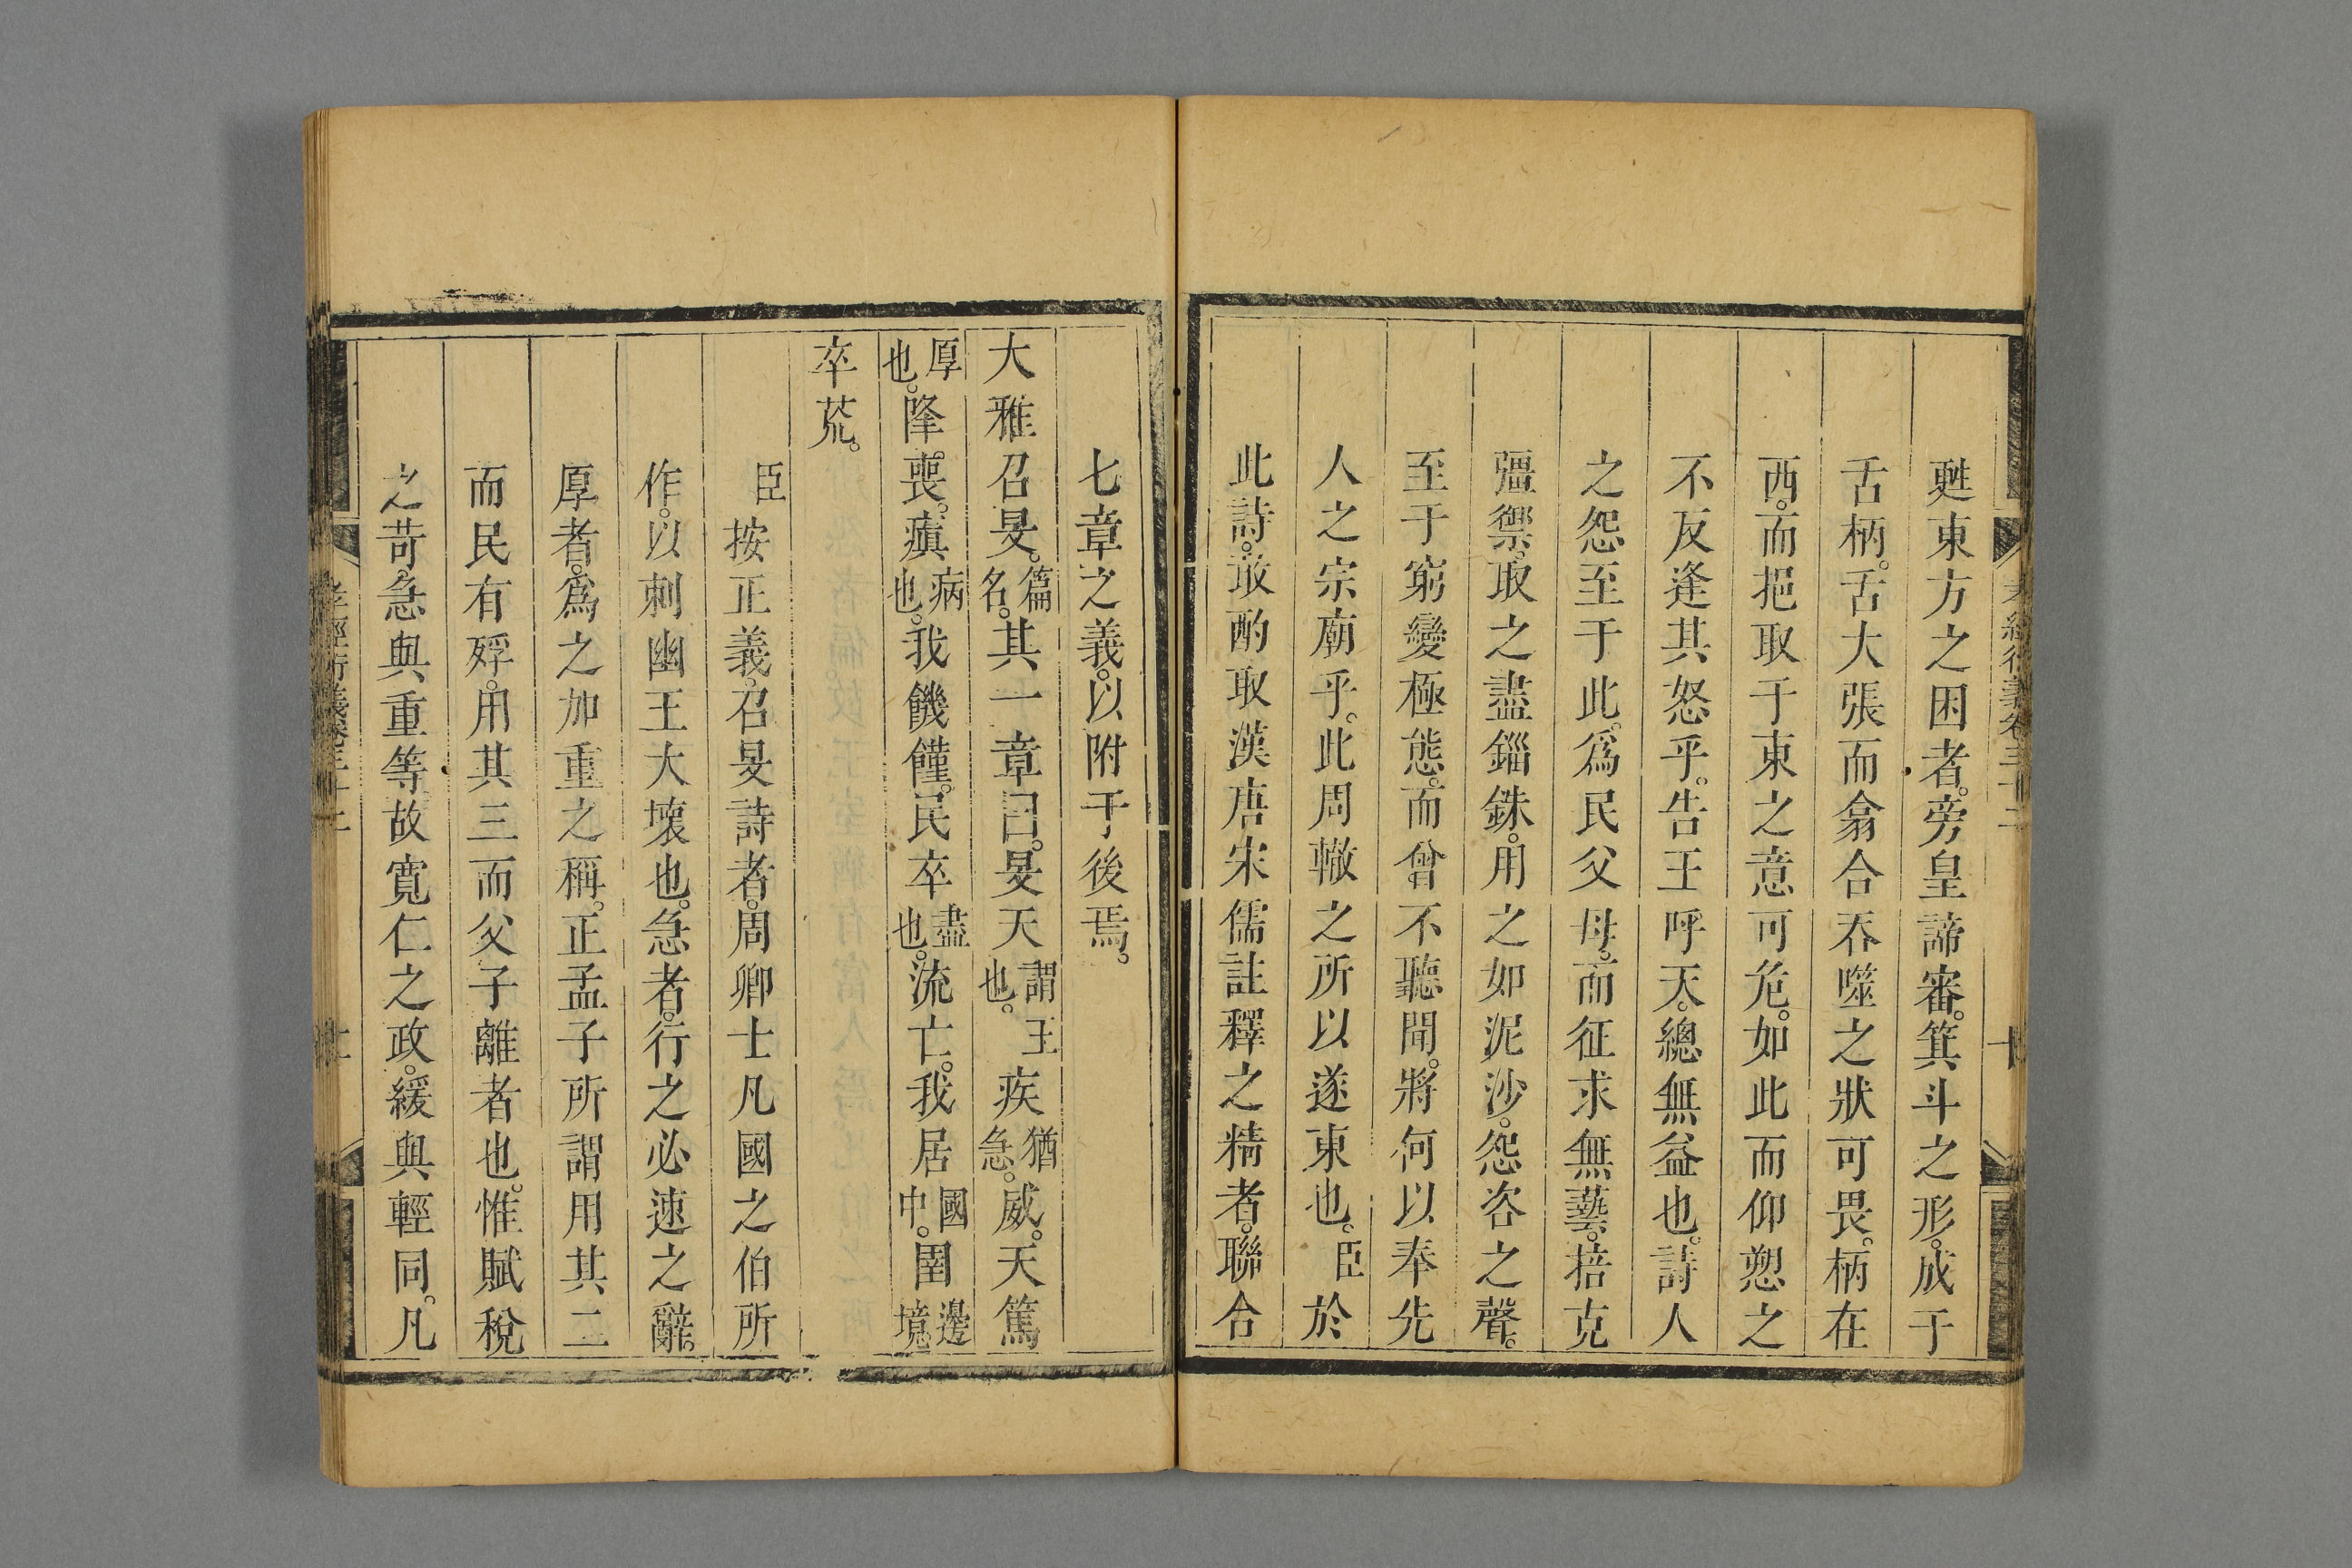 甦東方之困者。旁皇諦審。箕斗之形。成于
舌柄。舌大張而翕合吞噬之狀可畏。柄在
西。而挹取于東之意可危。如此而仰愬之
不反逢其怒乎。告王呼天。總無益也。詩人
之怨至于此。爲民父母。而征求無藝。掊克
彊禦。取之盡錙銖。用之如泥沙。怨咨之聲。
至于窮變極態。而曾不聽聞。將何以奉先
人之宗廟乎。此周轍之所以遂東也。臣於
此詩。敢酌取漢唐宋儒註釋之精者。聯合
七章之義。以附于後焉。
大雅召旻。篇名。其一章曰。旻天謂王也。疾猶急。威。天篤
厚也。降喪。瘨病也。我饑饉。民卒盡也。流亡。我居國中。圉邊境。
卒荒。
臣按正義。召旻詩者。周卿士凡國之伯所
作。以刺幽王大壞也。急者。行之必速之辭。
厚者。爲之加重之稱。正孟子所謂用其二
而民有殍。用其三而父子離者也。惟賦稅
之苛。急與重等故寬仁之政。緩與輕同。凡
孝經衍義卷三十二